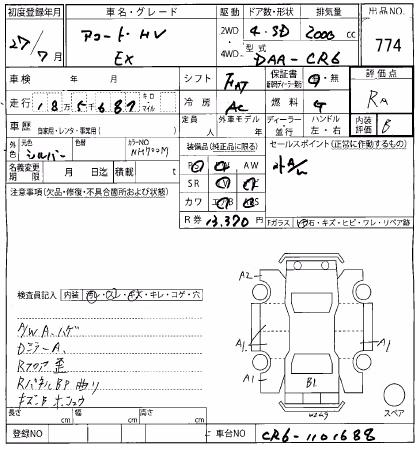 初度登録年月 車名・グレード 駆動 ドア数・形状 排気量 出品NO.
27/7月 アコード HV EX 2WD 4WD 4・SD 2000 cc 774
型式 DAA-CR6
車検 年 月 シフト FAT 保証書 有・無 評価点
走行 18万5687 キロ マイル 冷房 AC 燃料 RA
車歴 自家用・レンタ・事業用( ) 定員 人 外車モデル 年 ディーラー 並行 ハンドル 左・右 内装評価 B
外色 元色 シルバー 色替 カラーNO NH700M 装備品(純正品に限る) セールスポイント(正常に作動するもの)
名義変更期限 月 日迄 積載 t AW
SR
カワ
R券 13,370円 Fガラス 石・キズ・ヒビ・ワレ・リペア跡
注意事項(欠品・修復・不具合箇所および状態)
検査員記入 内装 キレ・コゲ・穴
A2
A/W A、ハゲ
Dミラー A、
Rフロア 歪
RパネルBP曲り
A1 A1 A1 A1
B1
W2 スペア
長さ cm 幅 cm 高さ cm
登録NO 車台NO CR6-1101688